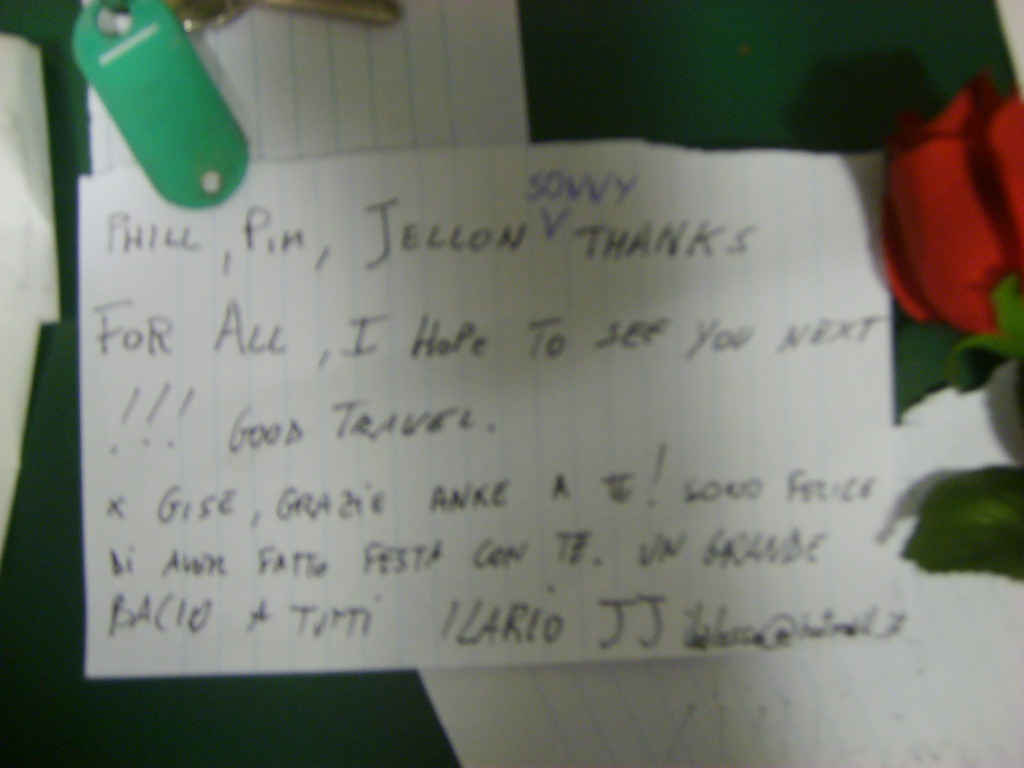 PHILL, PIM, JELLON SONVY THANKS
FOR ALL, I HOPE TO SEE YOU NEXT
!!! GOOD TRAVEL.
x GISE, GRAZIE ANKE A TE! SONO FELICE
DI AVER FATTO FESTA CON TE. UN GRANDE
BACIO A TUTTI ILARIO JJ